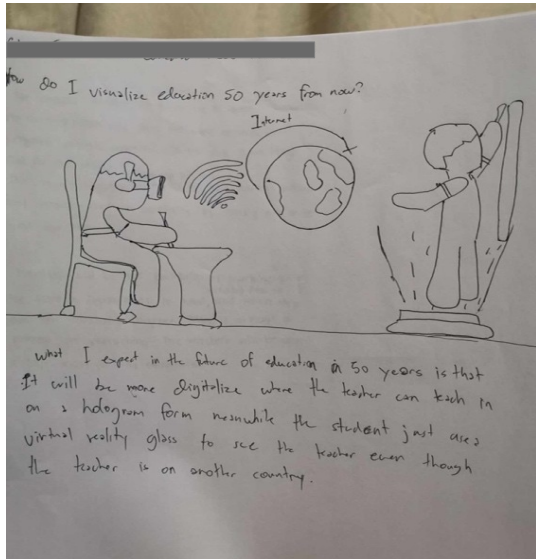 How Do I visualize education 50 years from now?
Internet
What I expect in the future of education in 50 years is that
It will be more digitalize where the teacher can teach in
on a hologram form meanwhile the student just uses
virtual reality glass to see the teacher even though
the teacher is on another country.